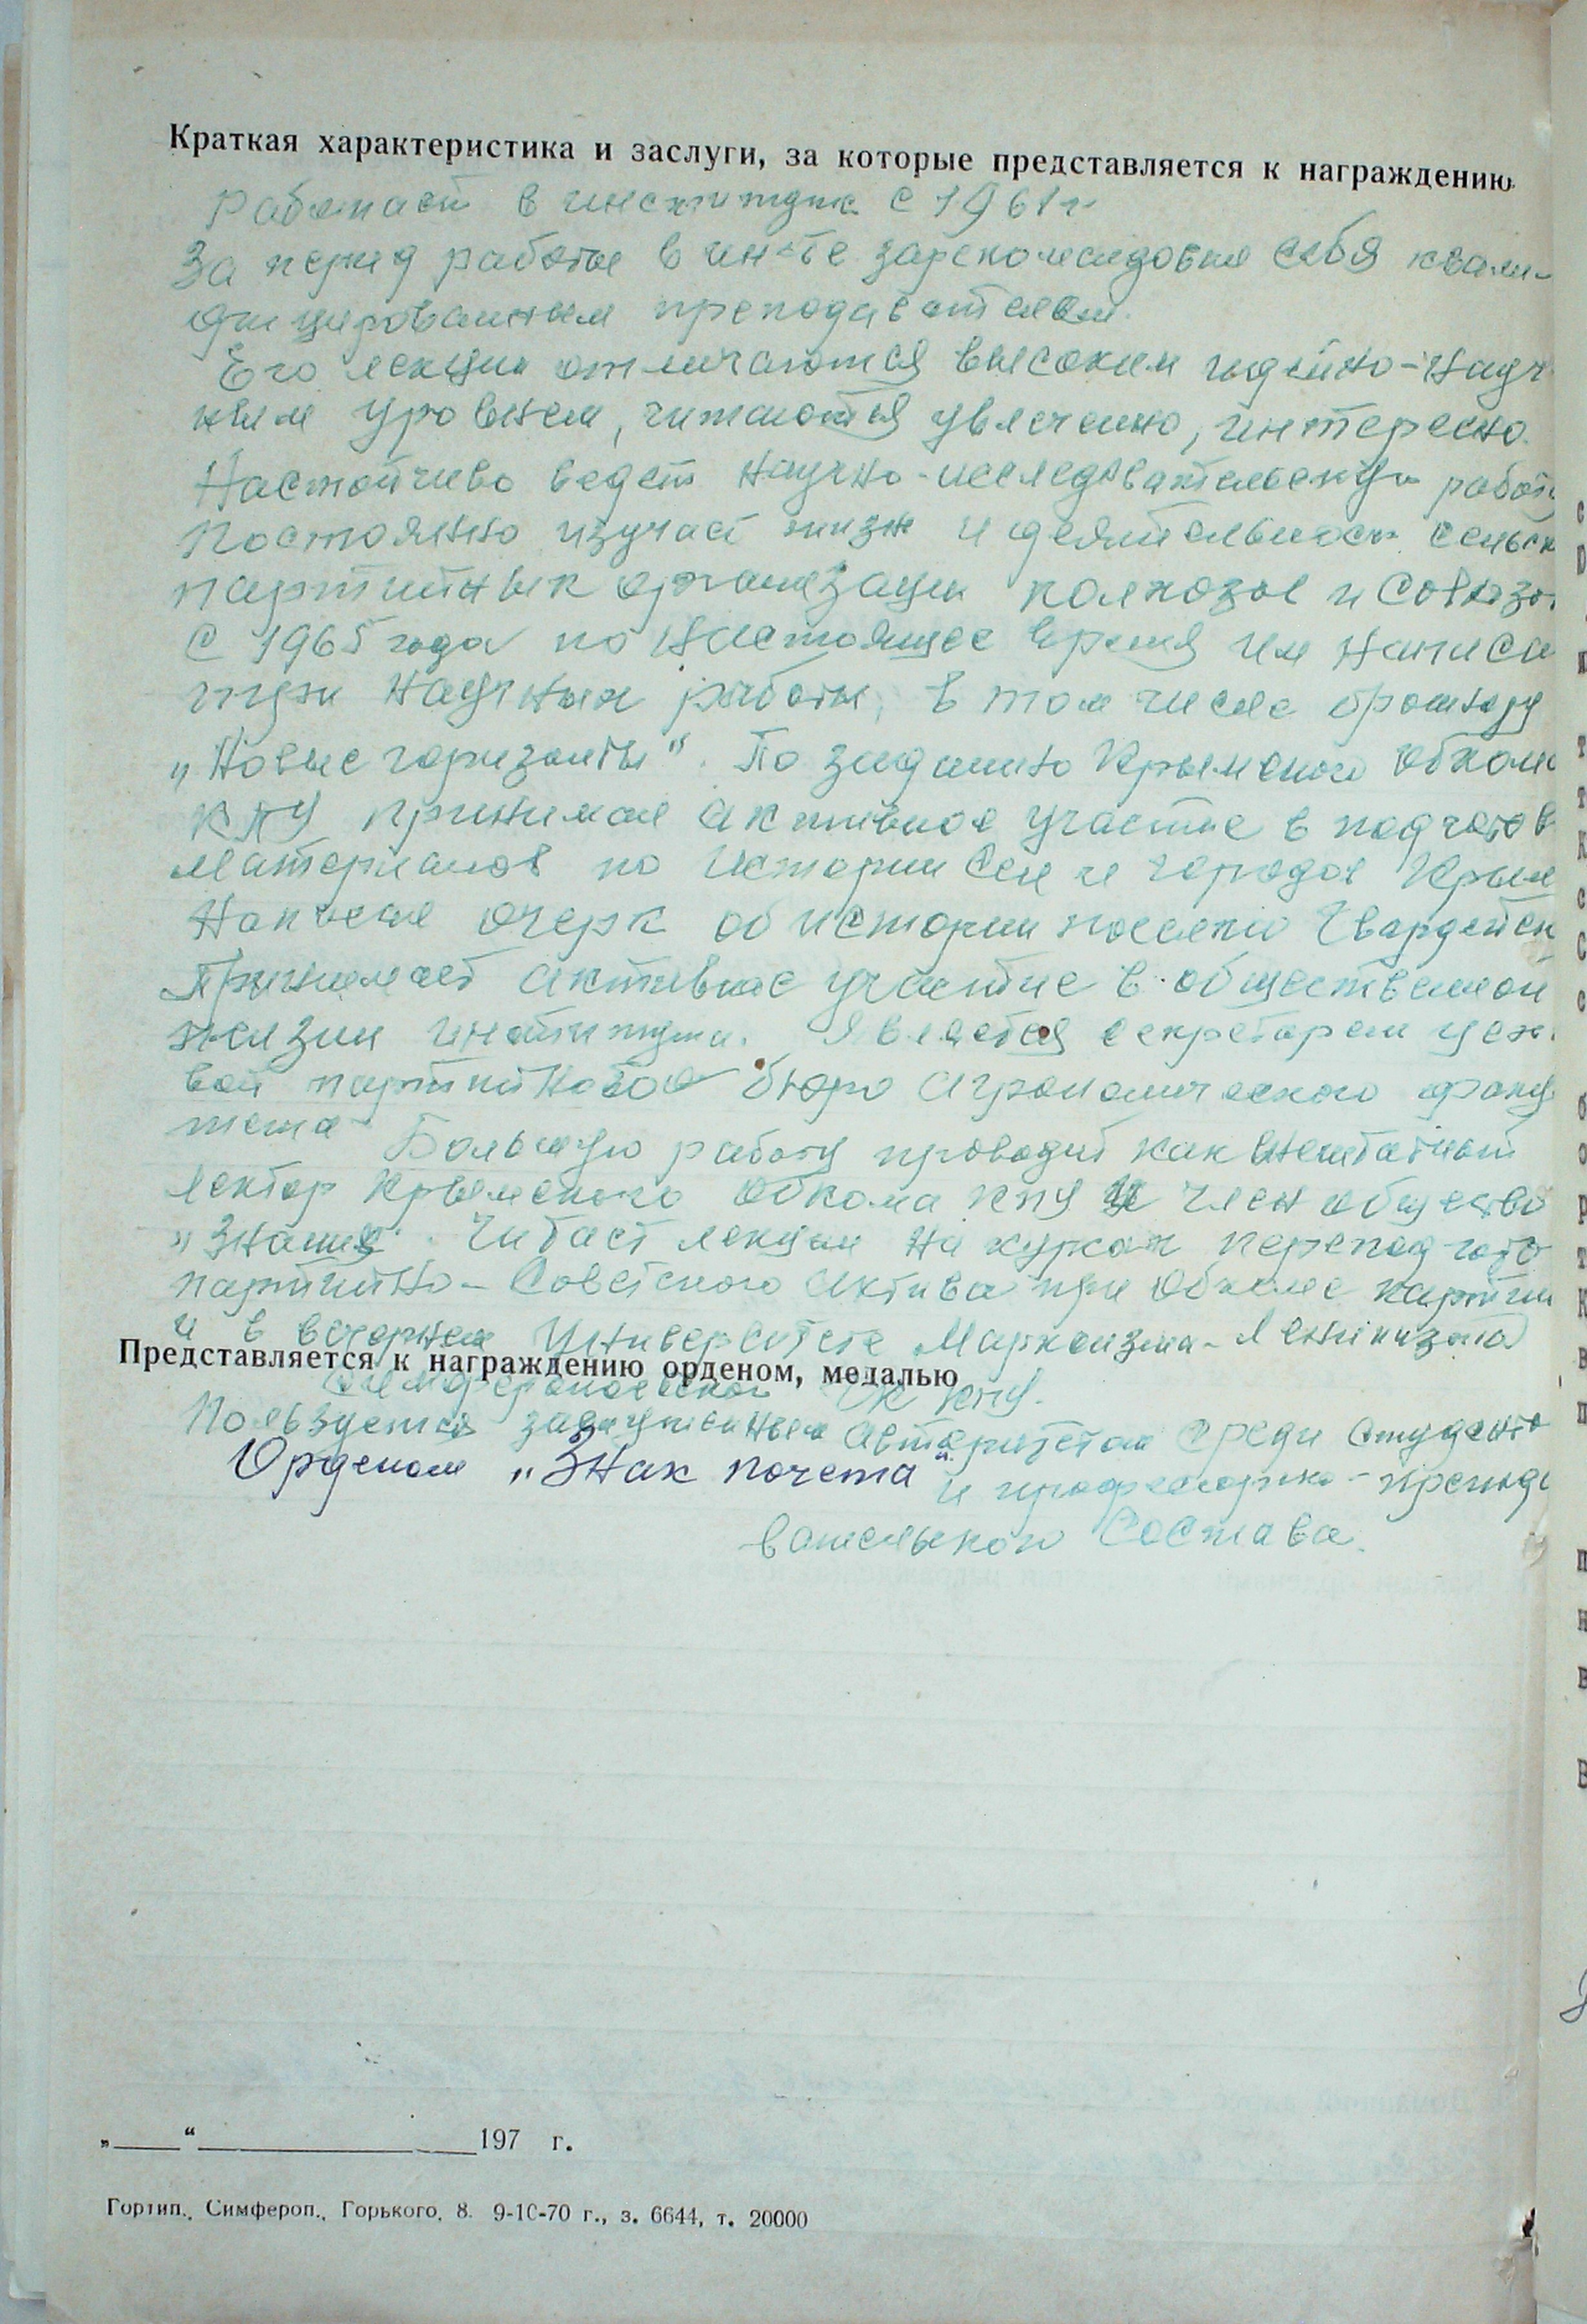 Краткая характеристика и заслуги, за которые представляется к награждению
Работает в институте с 1961 г
За период работы в ин-те зарекомендовал себя квали-
фицированным преподавателем.
Его лекции отличаются высоким идейно-науч
ным уровнем, читаются увлеченно, интересно.
Настойчиво ведет научно-исследовательскую работу
Постоянно изучает жизнь и деятельность сельск
партийных организации колхозов и совхозо
С 1965 года по настоящее время им написа
научных работы, в том числе брошюру
„Новые горизонты". По заданию Крымского обком
КПУ принимал активное участие в подготов
материалов по истории сел и городов Крыма
Написал очерк об истории поселка Гвардейск
Принимает активное участие в общественной
жизни института. Является секретарем цехо
вой партийного бюро агрономического факу
тета Большую работу проводит как внештатный
лектор Крымского обкома КПУ и член общества
„Знание". Читает лекции на курсах переподгото
партийно-советского актива при обкоме партии
и в вечернем университете Марксизма-Ленинизма
Представляется к награждению орденом, медалью
Симферопольского ГК КПУ.
Пользуется заслуженным авторитетом среди студенто
Орденом „Знак почета"
и профессорско-препода
вательского состава.
„ “ 197 г.
Гортип., Симфероп., Горького, 8. 9-10-70 г., з. 6644, т. 20000